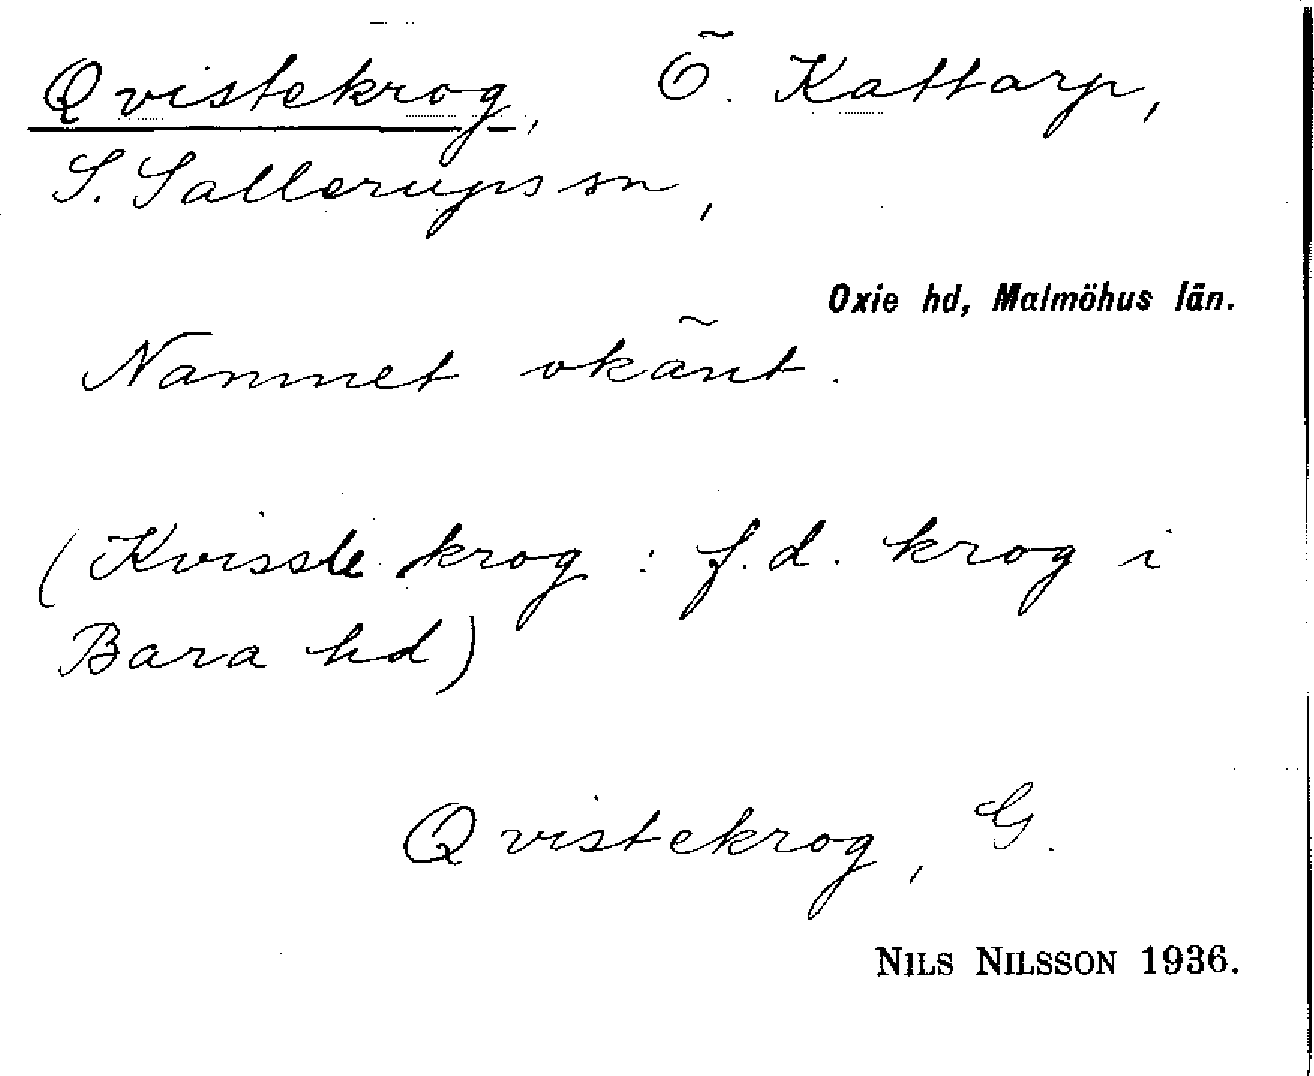 Qvistekrog, Ö. Kattarp,
S. Sallerups sn,
Oxie hd, Malmöhus län.
Namnet okänt.
(Kvisste krog: f.d. krog i
Bara hd)
Qvistekrog, G.
NILS NILSSON 1936.